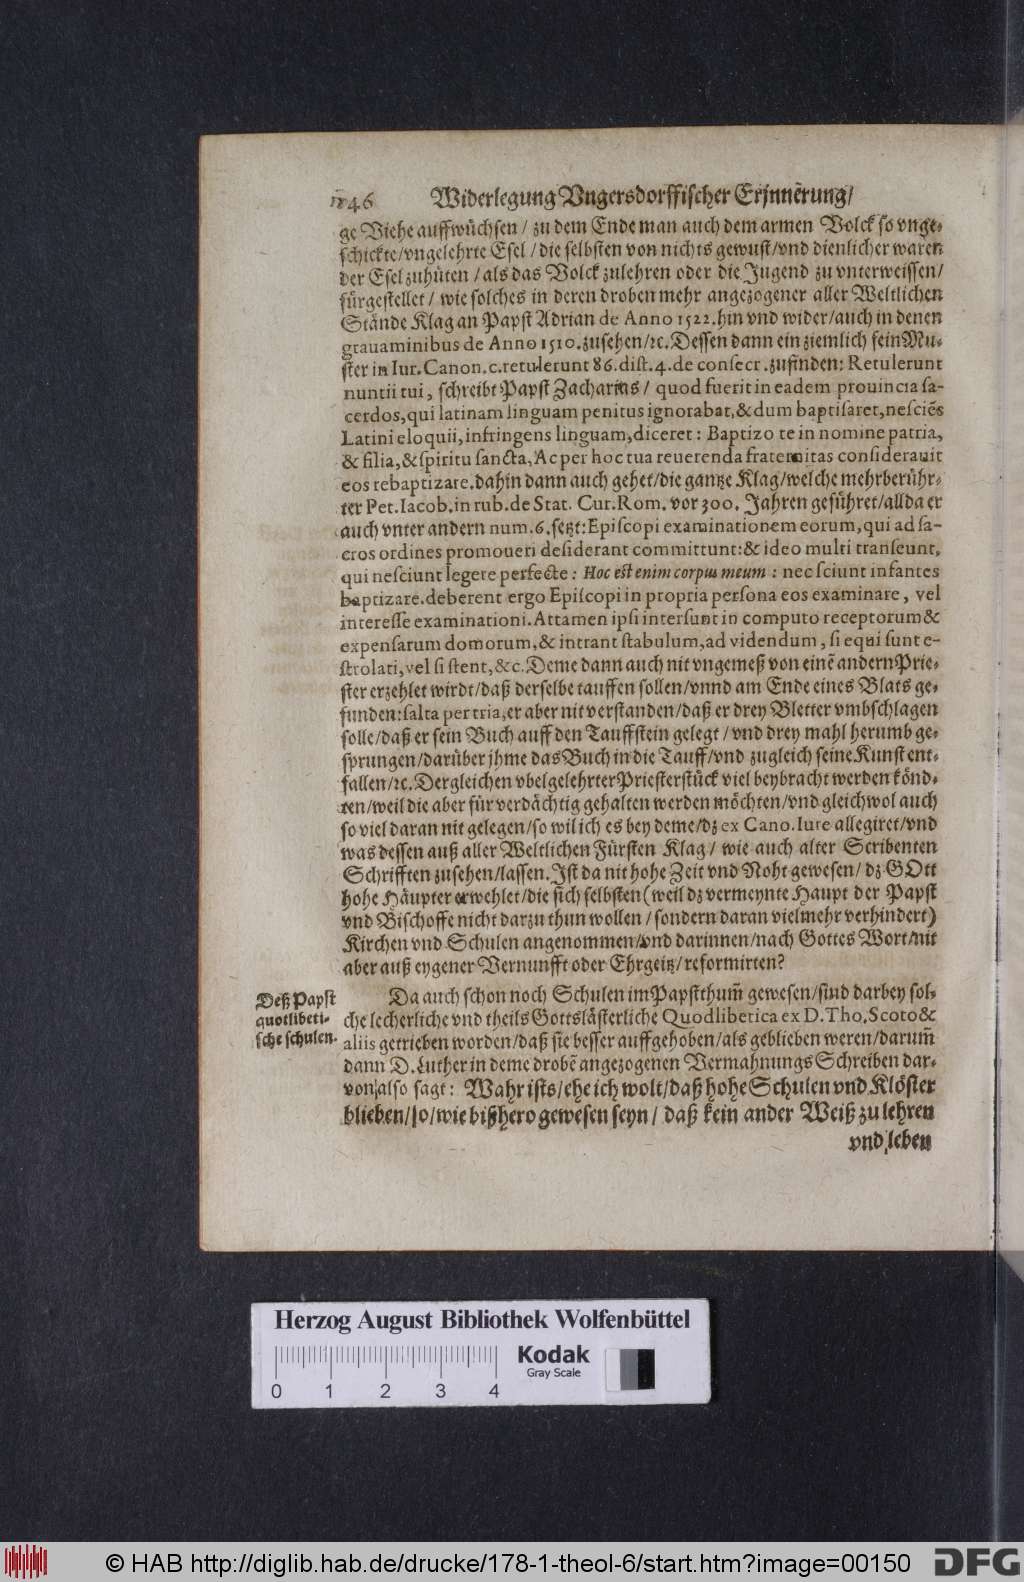 146 Widerlegung Vngersdorffischer Erjnnērung/
ge Viehe auffwüchsen / zu dem Ende man auch dem armen Volck so vnge-
schickte/vngelehrte Esel / die selbsten von nichts gewust/vnd dienlicher waren
der Esel zuhüten / als das Volck zulehren oder die Jugend zu vnterweissen/
fürgestellet / wie solches in deren droben mehr angezogener aller Weltlichen
Stände Klag an Papst Adrian de Anno 1522. hin vnd wider/auch in denen
grauaminibus de Anno 1510. zusehen/ꝛc. Dessen dann ein ziemlich fein Mu-
ster in Iur. Canon. c. retulerunt 86. dist. 4. de consecr. zufinden: Retulerunt
nuntii tui, schreibt Papst Zacharias / quod fuerit in eadem prouincia sa-
cerdos, qui latinam linguam penitus ignorabat, & dum baptisaret, nesciēs
Latini eloquii, infringens linguam, diceret: Baptizo te in nomine patria,
& filia, & spiritu sancta, Ac per hoc tua reuerenda fraternitas considerauit
eos rebaptizare. dahin dann auch gehet/die gantze Klag/welche mehrberühr-
ter Pet. Iacob. in rub. de Stat. Cur. Rom. vor 300. Jahren geführet/allda er
auch vnter andern num. 6. setzt: Episcopi examinationem eorum, qui ad sa-
cros ordines promoueri desiderant committunt: & ideo multi transeunt,
qui nesciunt legere perfecte: Hoc est enim corpus meum: nec sciunt infantes
baptizare. deberent ergo Episcopi in propria persona eos examinare, vel
interesse examinationi. Attamen ipsi intersunt in computo receptorum &
expensarum domorum, & intrant stabulum, ad videndum, si equi sunt e-
strolati, vel si stent, &c. Deme dann auch nit vngemeß von einē andern Prie-
ster erzehlet wirdt/daß derselbe tauffen sollen/vnnd am Ende eines Blats ge-
funden: salta per tria, er aber nit verstanden/daß er drey Bletter vmbschlagen
solle/daß er sein Buch auff den Tauffstein gelegt / vnd drey mahl herumb ge-
sprungen/darüber jhme das Buch in die Tauff/vnd zugleich seine Kunst ent-
fallen/ꝛc. Dergleichen vbelgelehrter Priesterstück viel beybracht werden könd-
ten/weil die aber für verdächtig gehalten werden möchten/vnd gleichwol auch
so viel daran nit gelegen/so wil ich es bey deme/dz ex Cano. Iure allegiret/vnd
was dessen auß aller Weltlichen Fürsten Klag / wie auch alter Scribenten
Schrifften zusehen/lassen. Ist da nit hohe Zeit vnd Noht gewesen / dz GOtt
hohe Häupter erwehlet/die sich selbsten (weil dz vermeynte Haupt der Papst
vnd Bischoffe nicht darzu thun wollen / sondern daran vielmehr verhindert)
Kirchen vnd Schulen angenommen/vnd darinnen/nach Gottes Wort/nit
aber auß eygener Vernunfft oder Ehrgeitz/reformirten?
Deß Papst
quotlibeti-
sche schulen.
Da auch schon noch Schulen im Papstthum̄ gewesen/sind darbey sol-
che lecherliche vnd theils Gottslästerliche Quodlibetica ex D. Tho. Scoto &
aliis getrieben worden/daß sie besser auffgehoben/als geblieben weren/darum̄
dann D. Luther in deme drobē angezogenen Vermahnungs Schreiben dar-
von/also sagt: Wahr ists/ehe ich wolt/daß hohe Schulen vnd Klöster
blieben/so/wie bißhero gewesen seyn / daß kein ander Weiß zu lehren
vnd leben
Herzog August Bibliothek Wolfenbüttel
Kodak
Gray Scale
0 1 2 3 4
© HAB http://diglib.hab.de/drucke/178-1-theol-6/start.htm?image=00150
DFG